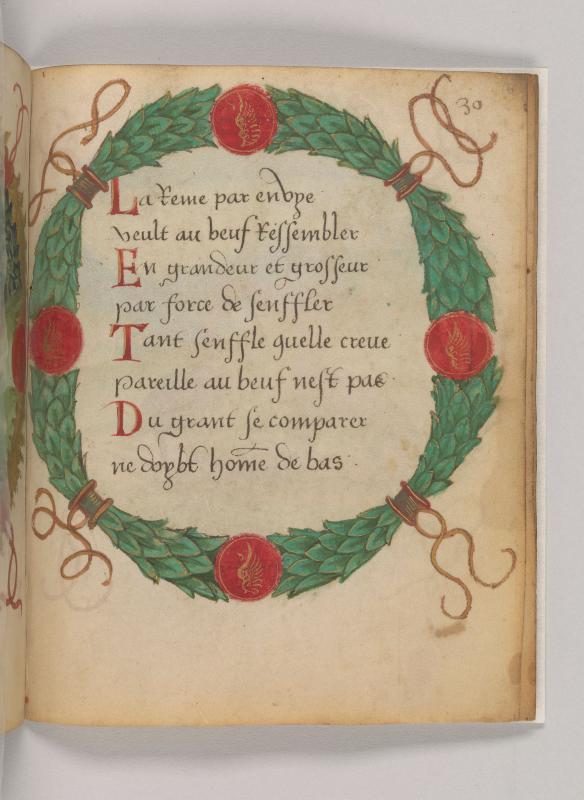 30
La Reine par envye
veult au beuf Ressembler
En grandeur et grosseur
par force de senffler
Tant senffle quelle creue
pareille au beuf nest pas
Du grant se comparer
ne doybt home de bas